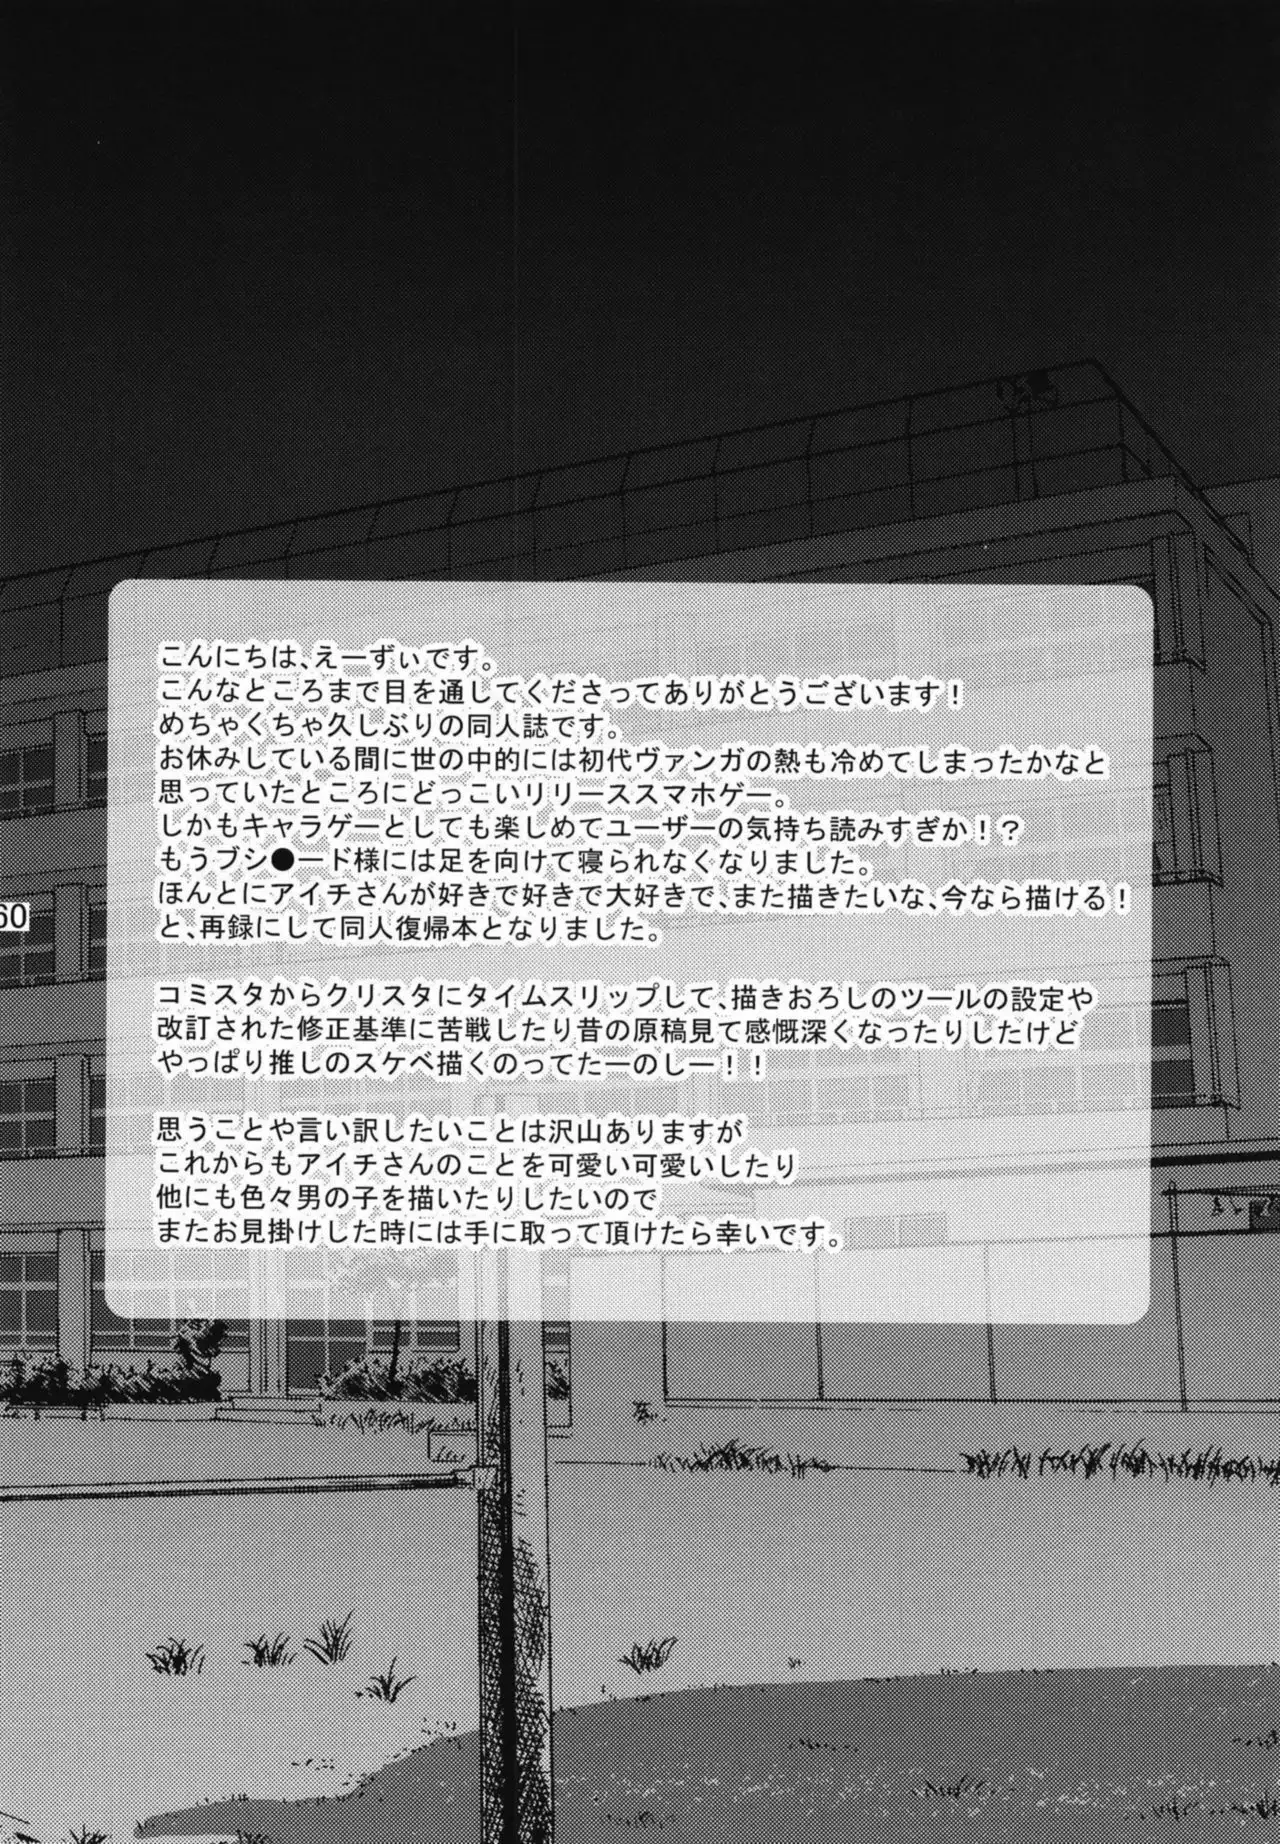 こんにちは、えーずぃです。
こんなところまで目を通してくださってありがとうございます！
めちゃくちゃ久しぶりの同人誌です。
お休みしている間に世の中的には初代ヴァンガの熱も冷めてしまったかなと
思っていたところにどっこいリリーススマホゲー。
しかもキャラゲーとしても楽しめてユーザーの気持ち読みすぎか！？
もうブシ●ード様には足を向けて寝られなくなりました。
ほんとにアイチさんが好きで好きで大好きで、また描きたいな、今なら描ける！
と、再録にして同人復帰本となりました。
60
コミスタからクリスタにタイムスリップして、描きおろしのツールの設定や
改訂された修正基準に苦戦したり昔の原稿見て感慨深くなったりしたけど
やっぱり推しのスケベ描くのってたーのしー！！
思うことや言い訳したいことは沢山ありますが
これからもアイチさんのことを可愛い可愛いしたり
他にも色々男の子を描いたりしたいので
またお見掛けした時には手に取って頂けたら幸いです。